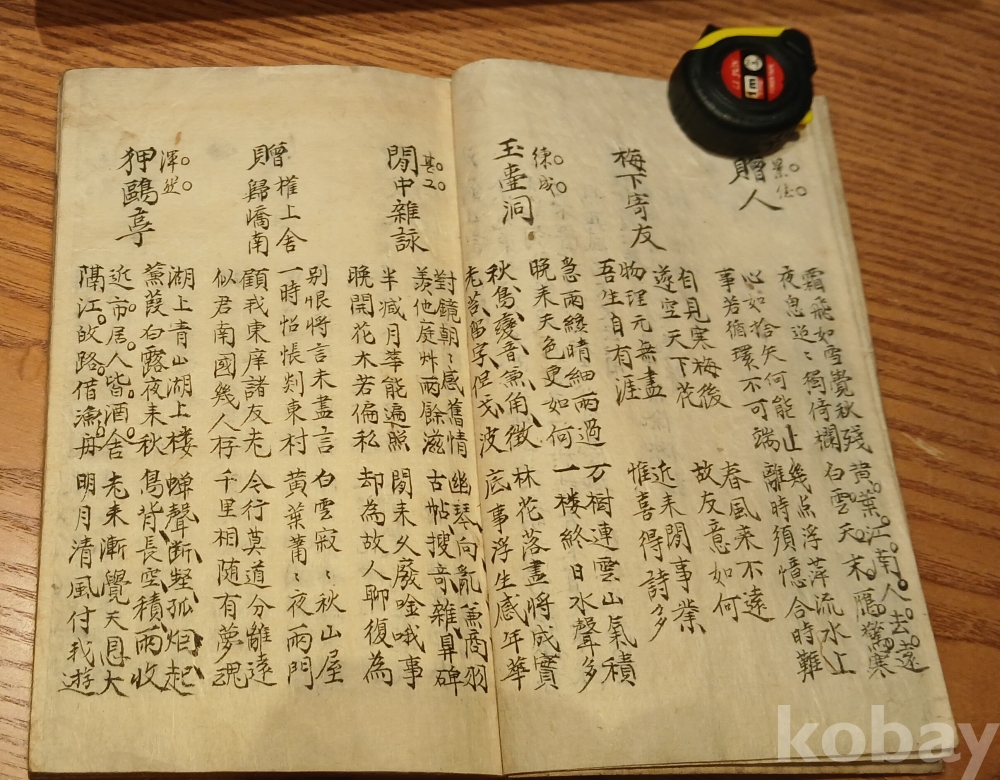 贈人
霜飛如雪覺秋殘 黃葉江南人去遠
夜息迢〻獨倚欄 白雲天末隔驚寒
心如拾矢何能止 幾点浮萍流水上
事若循環不可端 離時須憶合時難
梅下寄友
自見寒梅後 春風來不遠
遊空天下花 故友意如何
物理元無盡 近來閒事業
吾生自有涯 惟喜得詩多
玉壺洞
練成
急雨緩晴細雨過 万樹連雲山氣積
晚來天色更如何 一樓終日水聲多
秋鳥變音兼角徵 林花落盡將成實
底事浮生感年華
閒中雜詠
對鏡朝〻感舊情 幽琴向亂兼商羽
羨他庭艸雨餘滋 古帖搜奇雜鼻碑
半减月華能遍照 閒來久廢唫哦事
晚開花木若偏私 却為故人聊復為
贈權上舍歸嶠南
別恨將言未盡言 白雲寂〻秋山屋
一時怊悵別東村 黃葉蕭〻夜雨門
顧我東庠諸友老 令行莫道分離遠
似君南國幾人存 千里相随有夢魂
狎鷗亭
湖上青山湖上楼 蟬聲斷壑孤烟起
蒹葭白露夜来秋 鳥背長空積雨收
近市居人皆酒舍 老来漸覺天恩大
隔江故路借漁舟 明月清風付我遊
kobay